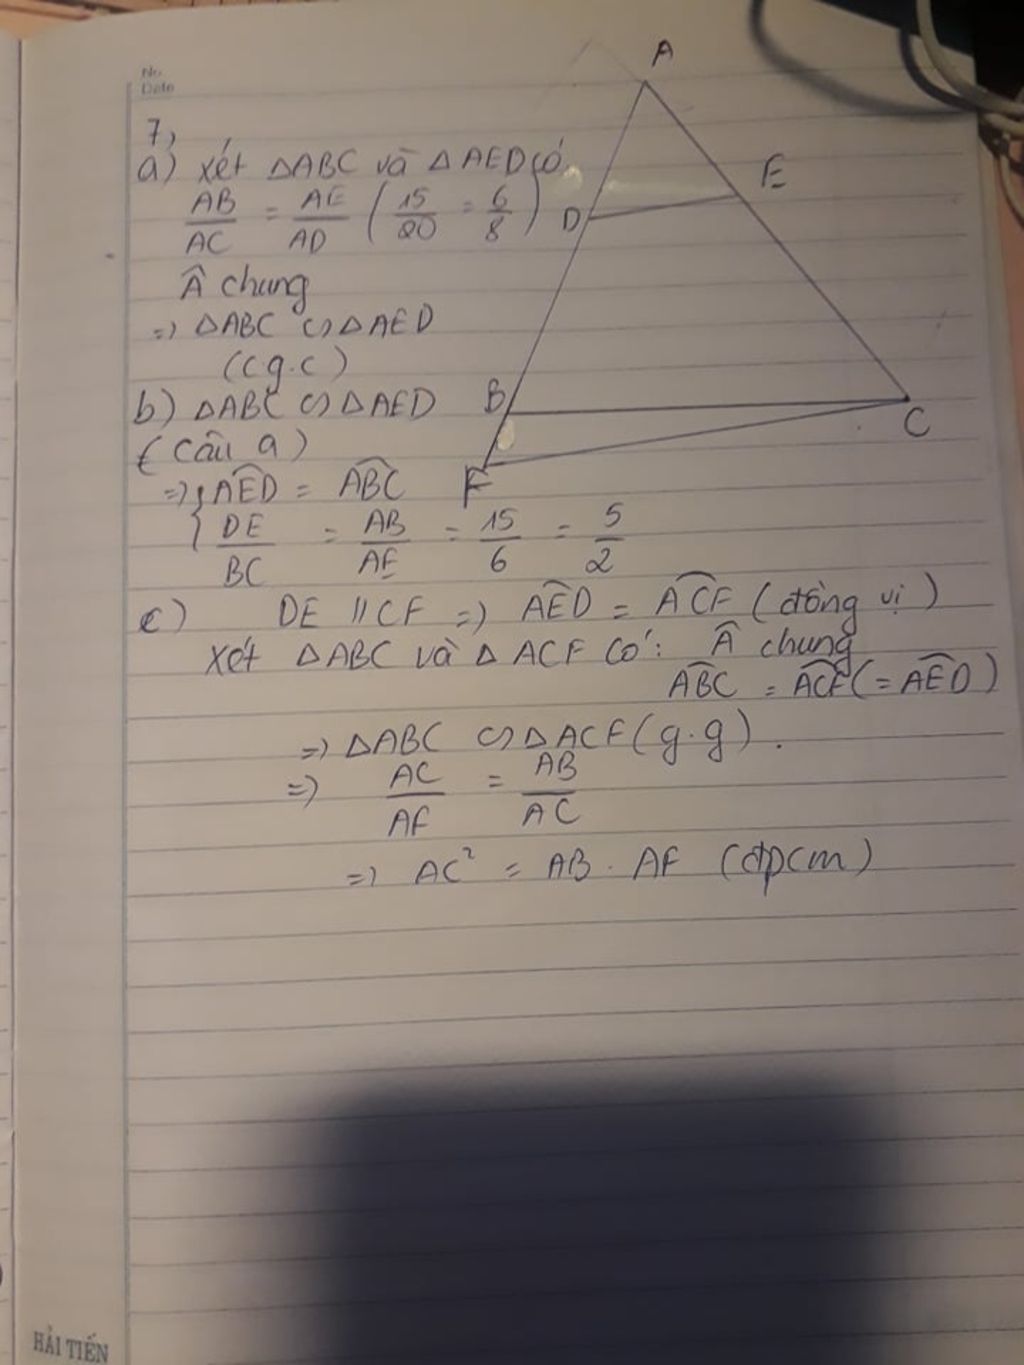 No.
Date
7,
a) xét ΔABC và ΔAED có
AB/AC = AE/AD (15/20 = 6/8)
Â chung
=> ΔABC ∽ ΔAED
(c.g.c)
b) ΔABC ∽ ΔAED
(câu a)
=> { AÊD = AB̂C
DE/BC = AB/AE = 15/6 = 5/2
c) DE // CF => AÊD = AĈF (đồng vị)
Xét ΔABC và ΔACF có: Â chung
AB̂C = AĈF (= AÊD)
=> ΔABC ∽ ΔACF (g.g).
=> AC/AF = AB/AC
=> AC² = AB . AF (đpcm)
A
E
D
B
C
F
HẢI TIẾN